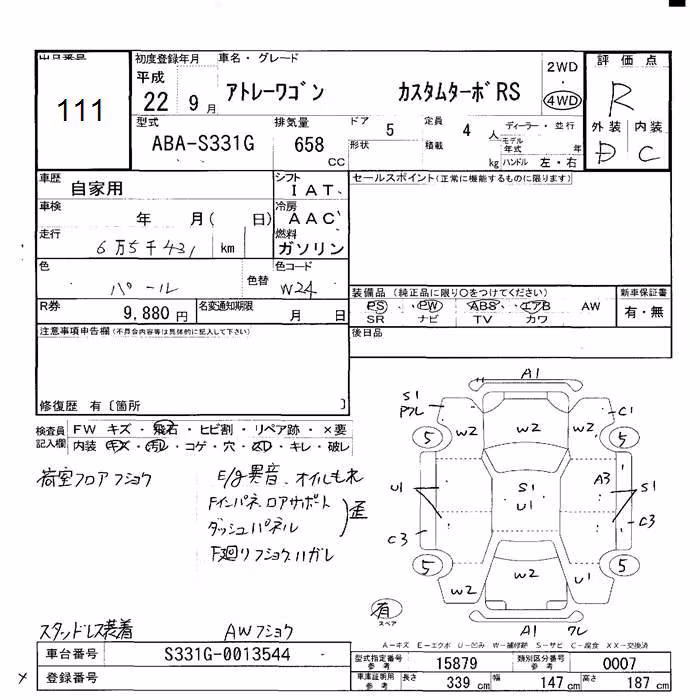 出品番号
111
初度登録年月 車名・グレード
平成 22 9月 アトレーワゴン カスタムターボRS
2WD
4WD
評価点
R
外装 内装
D C
型式 ABA-S331G
排気量 658 CC
ドア 5 定員 4 人
形状 積載 kg
ディーラー・並行
モデル年式 年
ハンドル 左・右
車歴 自家用
シフト IAT
車検 年 月( 日)
冷房 AAC
走行 6万5千431 km
燃料 ガソリン
色 パール 色替
色コード W24
R券 9,880円
名変通知期限 月 日
セールスポイント(正常に機能するものに限ります)
装備品(純正品に限り○をつけてください)
PS PW ABS エアB AW
SR ナビ TV カワ
新車保証書
有・無
後日品
注意事項申告欄(不具合内容等は具体的に記入して下さい)
修復歴 有〔箇所 〕
検査員記入欄
FW キズ・飛石・ヒビ割・リペア跡・×要
内装 キズ・汚レ・コゲ・穴・スレ・キレ・破レ
荷室フロアフショウ
E/g異音、オイルもれ
Fインパネ、ロアサポート
ダッシュパネル
歪
F廻りフショウハガレ
スタッドレス装着
AWフショウ
A1
S1
アクレ
W2
W2
W2
C1
5
5
U1
S1
U1
A3
S1
C3
C3
5
5
W2
W2
U1
有
スペア
A1 クレ
A-キズ E-エクボ U-凹み W-補修跡 S-サビ C-腐食 XX-交換済
車台番号 S331G-0013544
登録番号
型式指定番号 参考 15879
類別区分番号 参考 0007
車庫証明用 参考 長さ 339 cm 幅 147 cm 高さ 187 cm